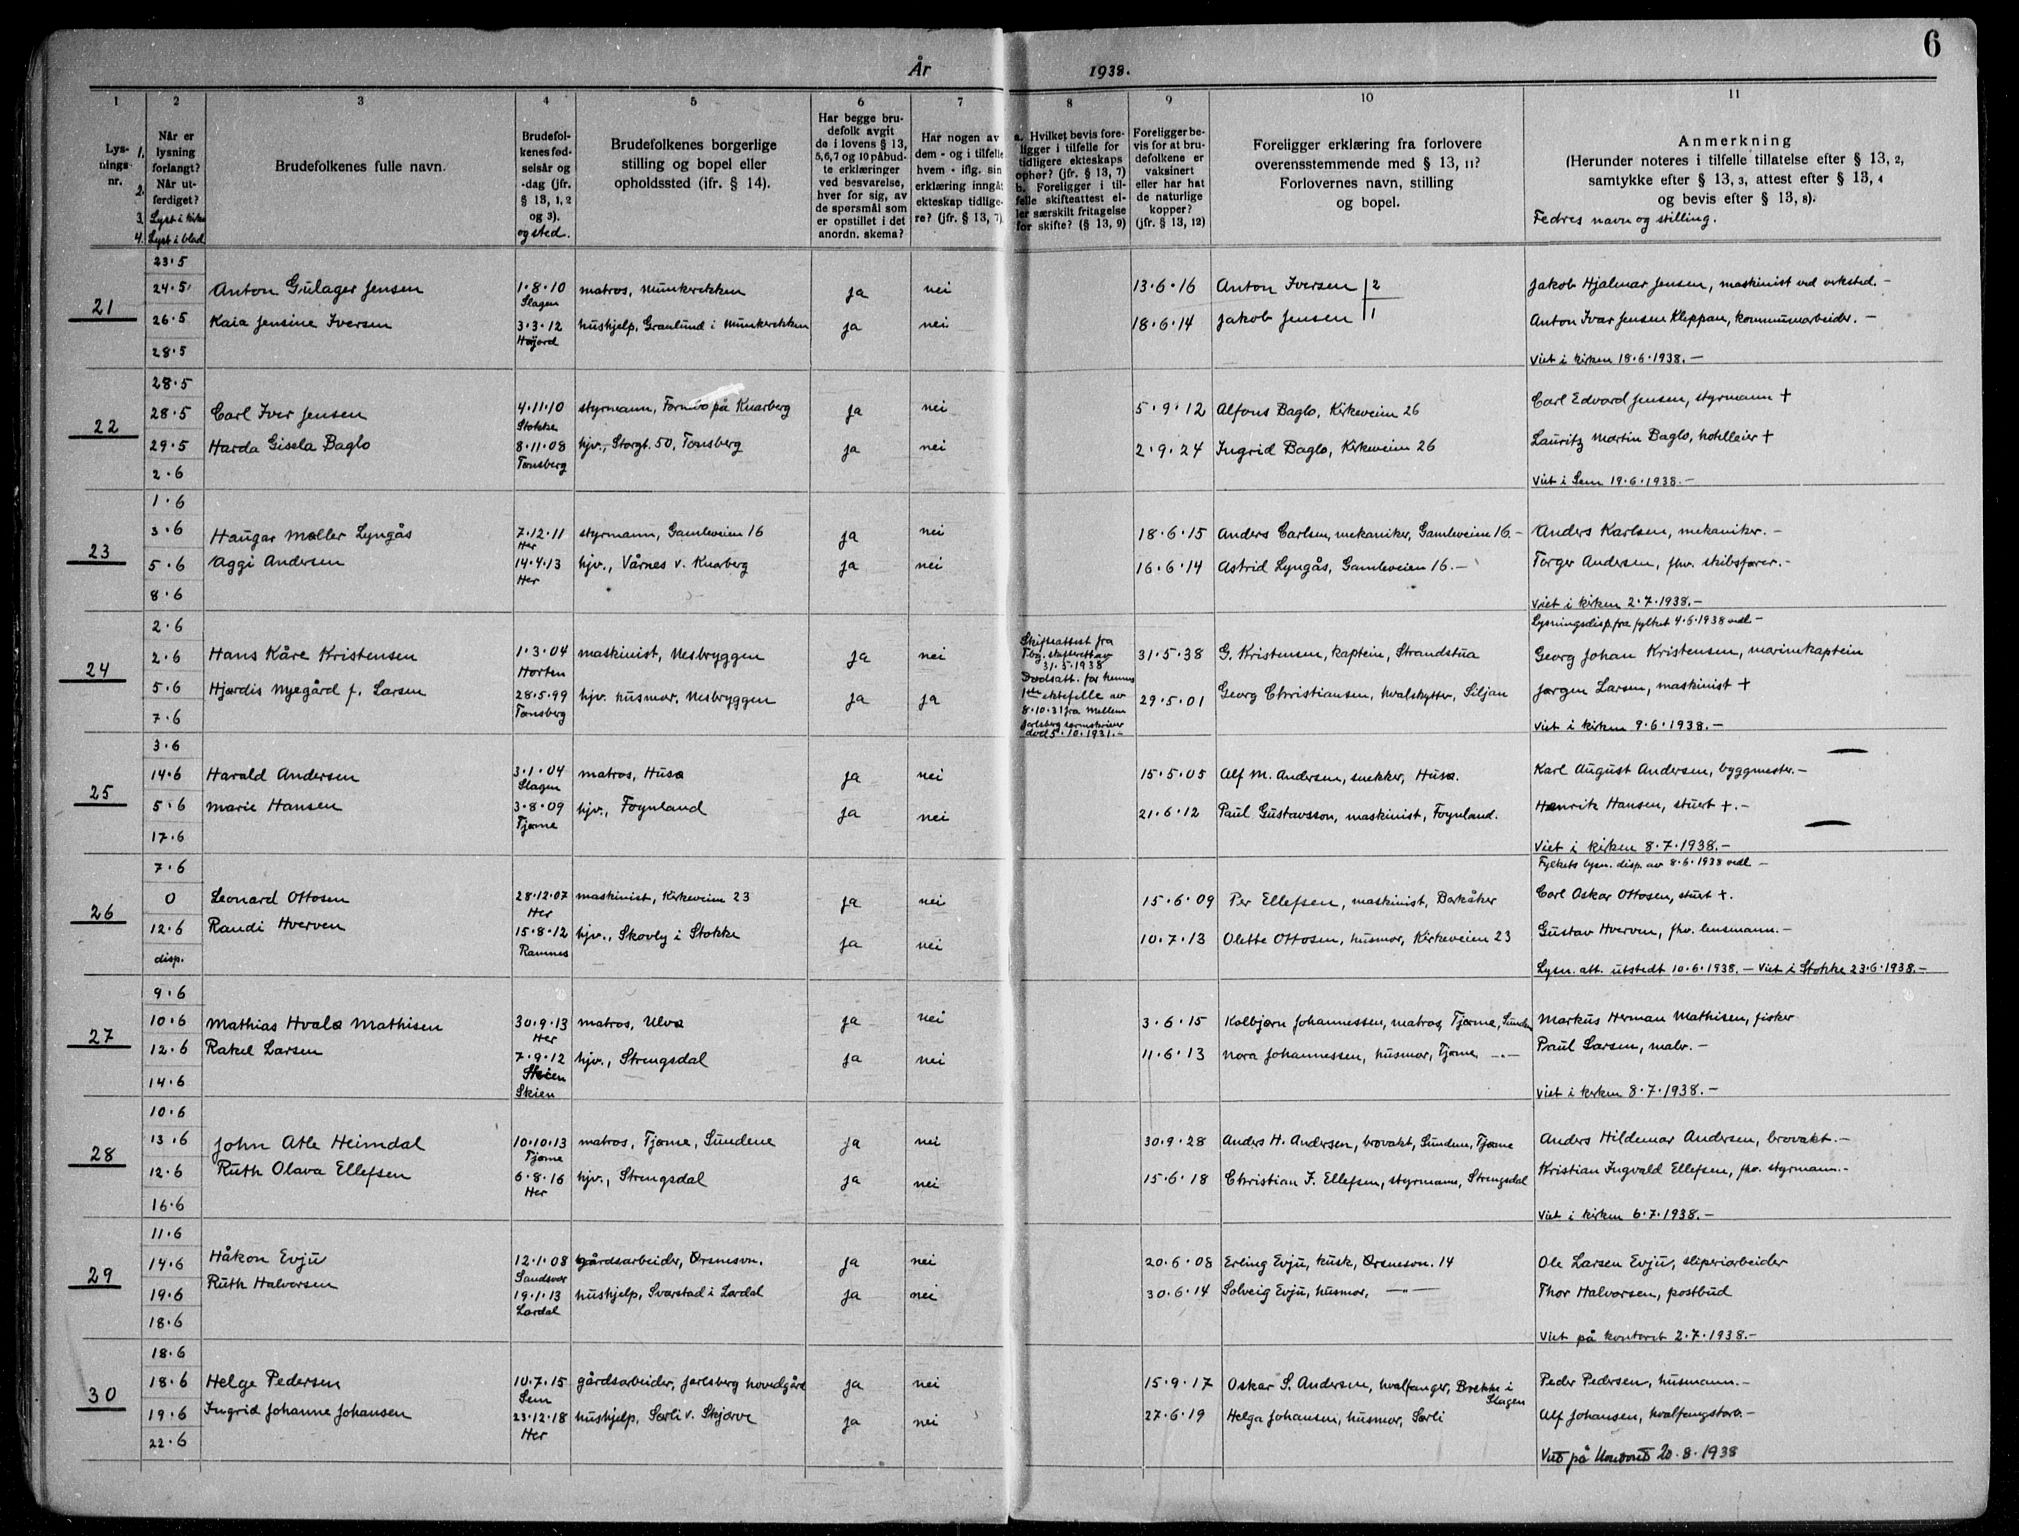 6
År 1938.
1 2 3 4 5 6 7 8 9 10 11
Lys-
nings-
nr.
1.
2.
3.
4.
Når er
lysning
forlangt?
Når ut-
ferdiget?
Lyst i kirke
Lyst i blad
Brudefolkenes fulle navn.
Brudefol-
kenes fød-
selsår og
-dag (jfr.
§ 13, 1, 2
og 3).
og sted.
Brudefolkenes borgerlige
stilling og bopel eller
opholdssted (ifr. § 14).
Har begge bru-
defolk avgit
de i lovens § 13,
5, 6, 7 og 10 påbud-
te erklæringer
ved besvarelse,
hver for sig, av
de spørsmål som
er opstillet i det
anordn. skema?
Har nogen av
dem - og i tilfelle
hvem - iflg. sin
erklæring inngåt
ekteskap tidlige-
re? (jfr. § 13, 7).
a. Hvilket bevis fore-
ligger i tilfelle for
tidligere ekteskaps
ophør? (jfr. § 13, 7)
b. Foreligger i til-
felle skifteattest el-
ler særskilt fritagelse
for skifte? (§ 13, 9)
Foreligger be-
vis for at bru-
defolkene er
vaksinert
eller har hat
de naturlige
kopper?
(jfr. § 13, 12)
Foreligger erklæring fra forlovere
overensstemmende med § 13, 11?
Forlovernes navn, stilling
og bopel.
Anmerkning
(Herunder noteres i tilfelle tillatelse efter § 13, 2,
samtykke efter § 13, 3, attest efter § 13, 4
og bevis efter § 13, 8).
Fedres navn og stilling.
21
23·5
24·5
26·5
28·5
Anton Gulager Jensen
1·8·10
Slagen
matros, Munkerekken
ja
nei
13·6·16
Anton Iversen 2
Jakob Hjalmar Jensen, maskinist ved verksted.-
Kaia Jensine Iversen
3·3·12
Høijord
hushjelp, Granlund i Munkerekken
ja
nei
18·6·14
Jakob Jensen 1
Anton Ivar Jensen Kleppan, kommunearbeider.-
Viet i kirken 18·6·1938.-
22
28·5
28·5
29·5
2·6
Carl Iver Jensen
4·11·10
Stokke
styrmann, Formbo på Knarberg
ja
nei
5·9·12
Alfons Baglo, Kirkeveien 26
Carl Edvard Jensen, styrmann +
Harda Gisela Baglo
8·11·08
Tønsberg
hjv., Storgt. 50, Tønsberg
ja
nei
2·9·24
Ingrid Baglo, Kirkeveien 26
Lauritz Martin Baglo, hotelleier +
Viet i Sem 19·6·1938.-
23
1·6
3·6
5·6
8·6
Haugar Møller Lyngås
7·12·11
Her
styrmann, Gamleveien 16
ja
nei
18·6·15
Anders Carlsen, mekaniker, Gamleveien 16.-
Anders Karlsen, mekaniker.-
Aggi Andersen
14·4·13
Her
hjv., Vårnes v. Knarberg
ja
nei
16·6·14
Astrid Lyngås, Gamleveien 16.-
Torger Andersen, fhv. skibsfører.-
Viet i kirken 2·7·1938.-
24
2·6
2·6
5·6
7·6
Lysningsdisp. fra fylket 4·6·1938 vedl.-
Hans Kåre Kristensen
1·3·04
Horten
maskinist, Nesbryggen
ja
nei
Skifteattest fra
Tbg. skifterett av
31·5·1938
Dødsatt. for hennes
1ste ektefelle av
8·10·31 fra Mellem
Jarlsberg sorenskriver
død 5·10·1931.-
31·5·38
G. Kristensen, kaptein, Strandstua
Georg Johan Kristensen, marinekaptein
Hjørdis Nyegård f. Larsen
28·5·99
Tønsberg
hjv. husmor, Nesbryggen
ja
ja
29·5·01
Georg Christiansen, hvalskytter, Siljan
Jørgen Larsen, maskinist +
Viet i kirken 9·6·1938.-
25
3·6
14·6
5·6
17·6
Harald Andersen
3·1·04
Slagen
matros, Husø
ja
nei
15·5·05
Alf M. Andersen, snekker, Husø.
Karl August Andersen, byggmester.-
Marie Hansen
3·8·09
Tjøme
hjv., Føynland
ja
nei
21·6·12
Paul Gustavsson, maskinist, Føynland.
Henrik Hansen, stuert +.-
Viet i kirken 8·7·1938.-
26
7·6
0
12·6
disp.
Fylkets lysn. disp. av 8·6·1938 vedl.-
Leonard Ottosen
28·12·07
Her
maskinist, Kirkeveien 23
ja
nei
15·6·09
Per Ellefsen, maskinist, Barkåker
Carl Oskar Ottosen, stuert +.
Randi Hverven
15·8·12
Ramnes
hjv., Skovly i Stokke
ja
nei
10·7·13
Olette Ottosen, husmor, Kirkeveien 23
Gustav Hverven, fhv. lensmann.-
Lysn. att. utstedt 10·6·1938.- Viet i Stokke 23·6·1938.-
27
9·6
10·6
12·6
14·6
Mathias Hvalø Mathisen
30·9·13
Her
matros, Ulvø
ja
nei
3·6·15
Kolbjørn Johannessen, matros, Tjøme, Sunden
Markus Herman Mathisen, fisker
Rakel Larsen
7·9·12
Skien
Skien
hjv., Strengsdal
ja
nei
11·6·13
Nora Johannessen, husmor, Tjøme -·-
Paul Larsen, maler.-
Viet i kirken 8·7·1938.-
28
10·6
13·6
12·6
16·6
John Atle Heimdal
10·10·13
Tjøme
matros, Tjøme, Sundene
ja
nei
30·9·28
Anders H. Andersen, brovakt, Sunden, Tjøme
Anders Hildemar Andersen, brovakt.-
Ruth Olava Ellefsen
6·8·16
Her
hjv., Strengsdal
ja
nei
15·6·18
Christian F. Ellefsen, styrmann, Strengsdal
Kristian Ingvald Ellefsen, fhv. styrmann.-
Viet i kirken 6·7·1938.-
29
11·6
14·6
19·6
18·6
Håkon Evju
12·1·08
Sandsvær
gårdsarbeider, Ørsnesvn.
ja
nei
20·6·08
Erling Evju, kusk, Ørsnesvn. 14
Ole Larsen Evju, sliperiarbeider
Ruth Halvorsen
19·1·13
Lardal
hushjelp, Svarstad i Lardal
ja
nei
30·6·14
Solveig Evju, husmor, -·-
Thor Halvorsen, postbud
Viet på kontoret 2·7·1938.-
30
18·6
18·6
19·6
22·6
Helge Pedersen
10·7·15
Sem
gårdsarbeider, Jarlsberg hovedgård
ja
nei
15·9·17
Oskar S. Andersen, hvalfanger, Brekke i
Slagen
Peder Pedersen, husmann.-
Ingrid Johanne Johansen
23·12·18
Her
hushjelp, Sørli v. Skjærve
ja
nei
27·6·19
Helga Johansen, husmor, Sørli
Alf Johansen, hvalfangstarb.-
Viet på kontoret 20·8·1938